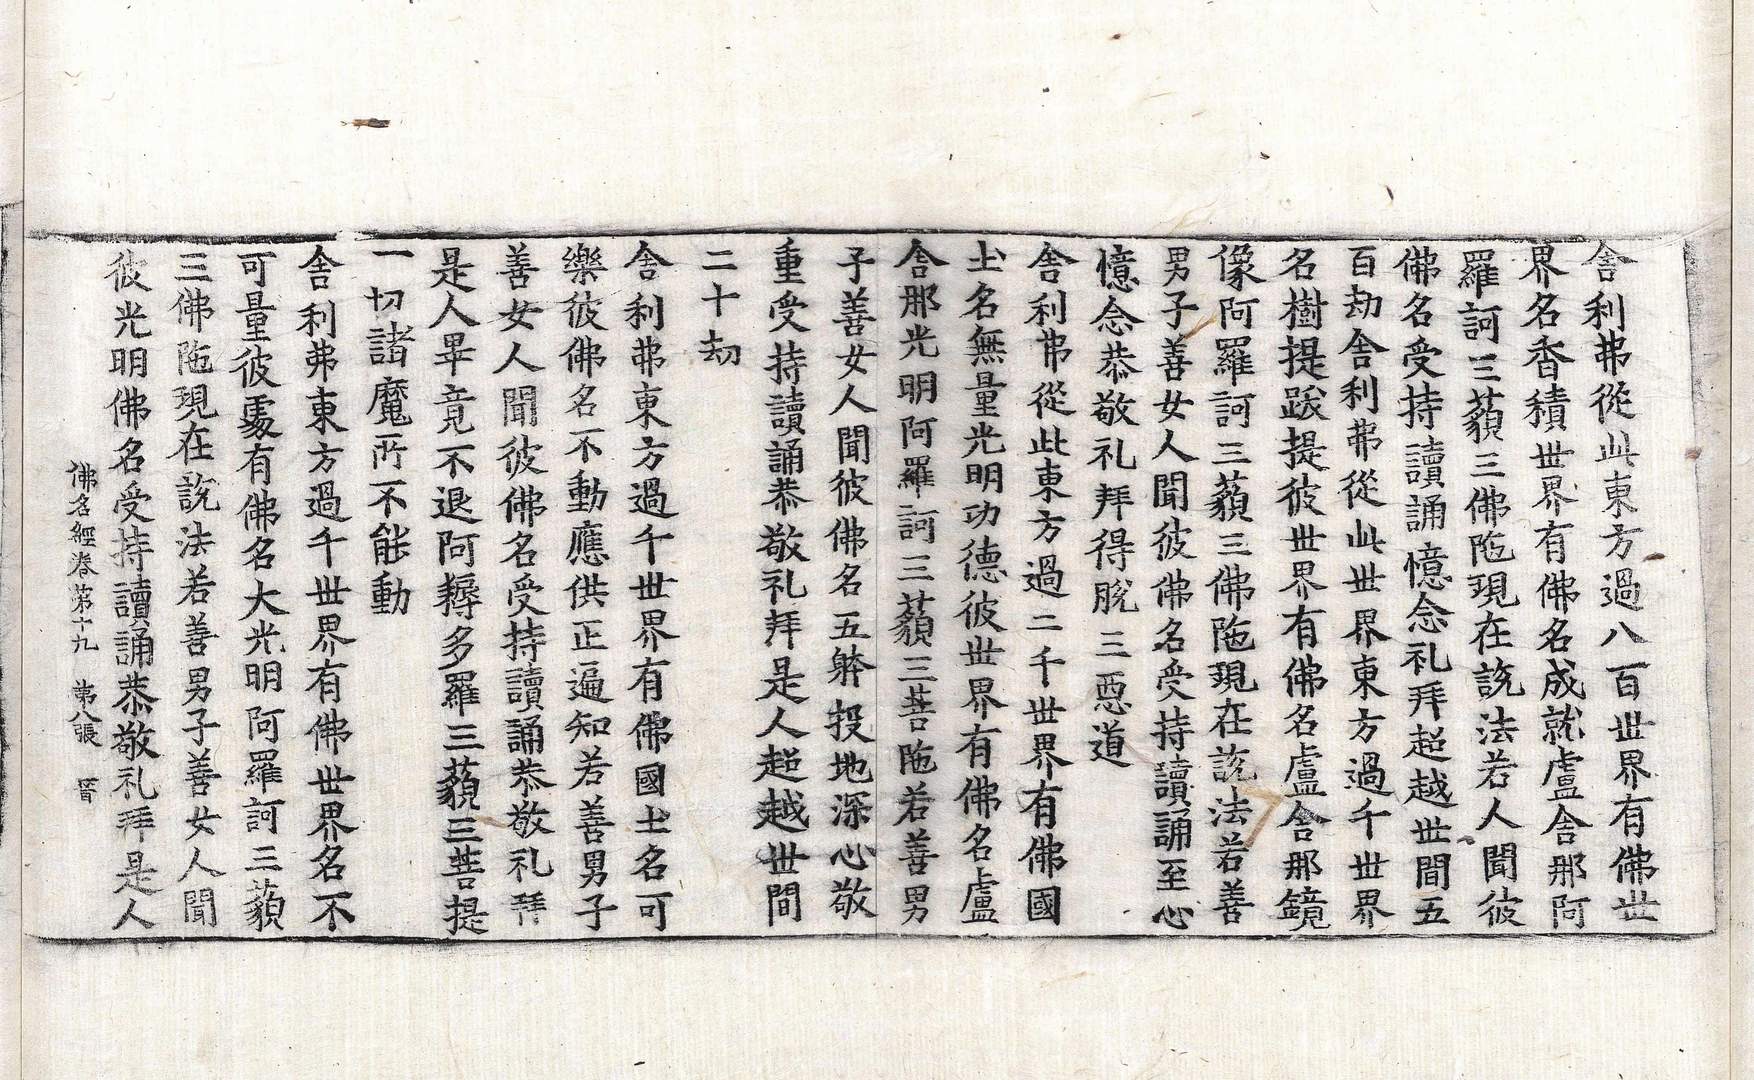 舍利弗從此東方過八百世界有佛世
界名香積世界有佛名成就盧舍那阿
羅訶三藐三佛陁現在說法若人聞彼
佛名受持讀誦憶念礼拜超越世間五
百劫舍利弗從此世界東方過千世界
名樹提跋提彼世界有佛名盧舍那鏡
像阿羅訶三藐三佛陁現在說法若善
男子善女人聞彼佛名受持讀誦至心
憶念恭敬礼拜得脫三惡道
舍利弗從此東方過二千世界有佛國
土名無量光明功德彼世界有佛名盧
舍那光明阿羅訶三藐三菩陁若善男
子善女人聞彼佛名五躰投地深心敬
重受持讀誦恭敬礼拜是人超越世間
二十劫
舍利弗東方過千世界有佛國土名可
樂彼佛名不動應供正遍知若善男子
善女人聞彼佛名受持讀誦恭敬礼拜
是人畢竟不退阿耨多羅三藐三菩提
一切諸魔所不能動
舍利弗東方過千世界有佛世界名不
可量彼處有佛名大光明阿羅訶三藐
三佛陁現在說法若善男子善女人聞
彼光明佛名受持讀誦恭敬礼拜是人
佛名經卷第十九 第八張